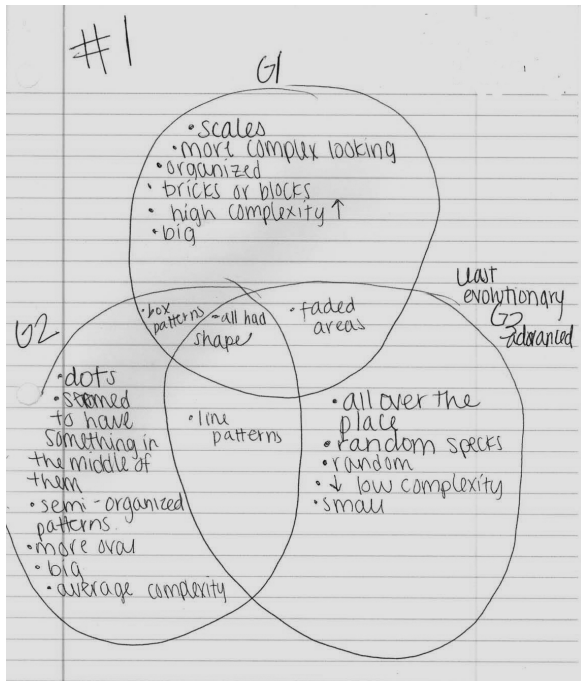 #1
G1
• scales
• more complex looking
• organized
• bricks or blocks
• high complexity ↑
• big
• box patterns
• all had shape
• faded areas
least evolutionary
G3
advanced
G2
• dots
• seemed
to have
something in
the middle of
them
• semi-organized
patterns.
• more oval
• big
• average complexity
• line
patterns
• all over the
place
• random specks
• random
• ↓ low complexity
• small